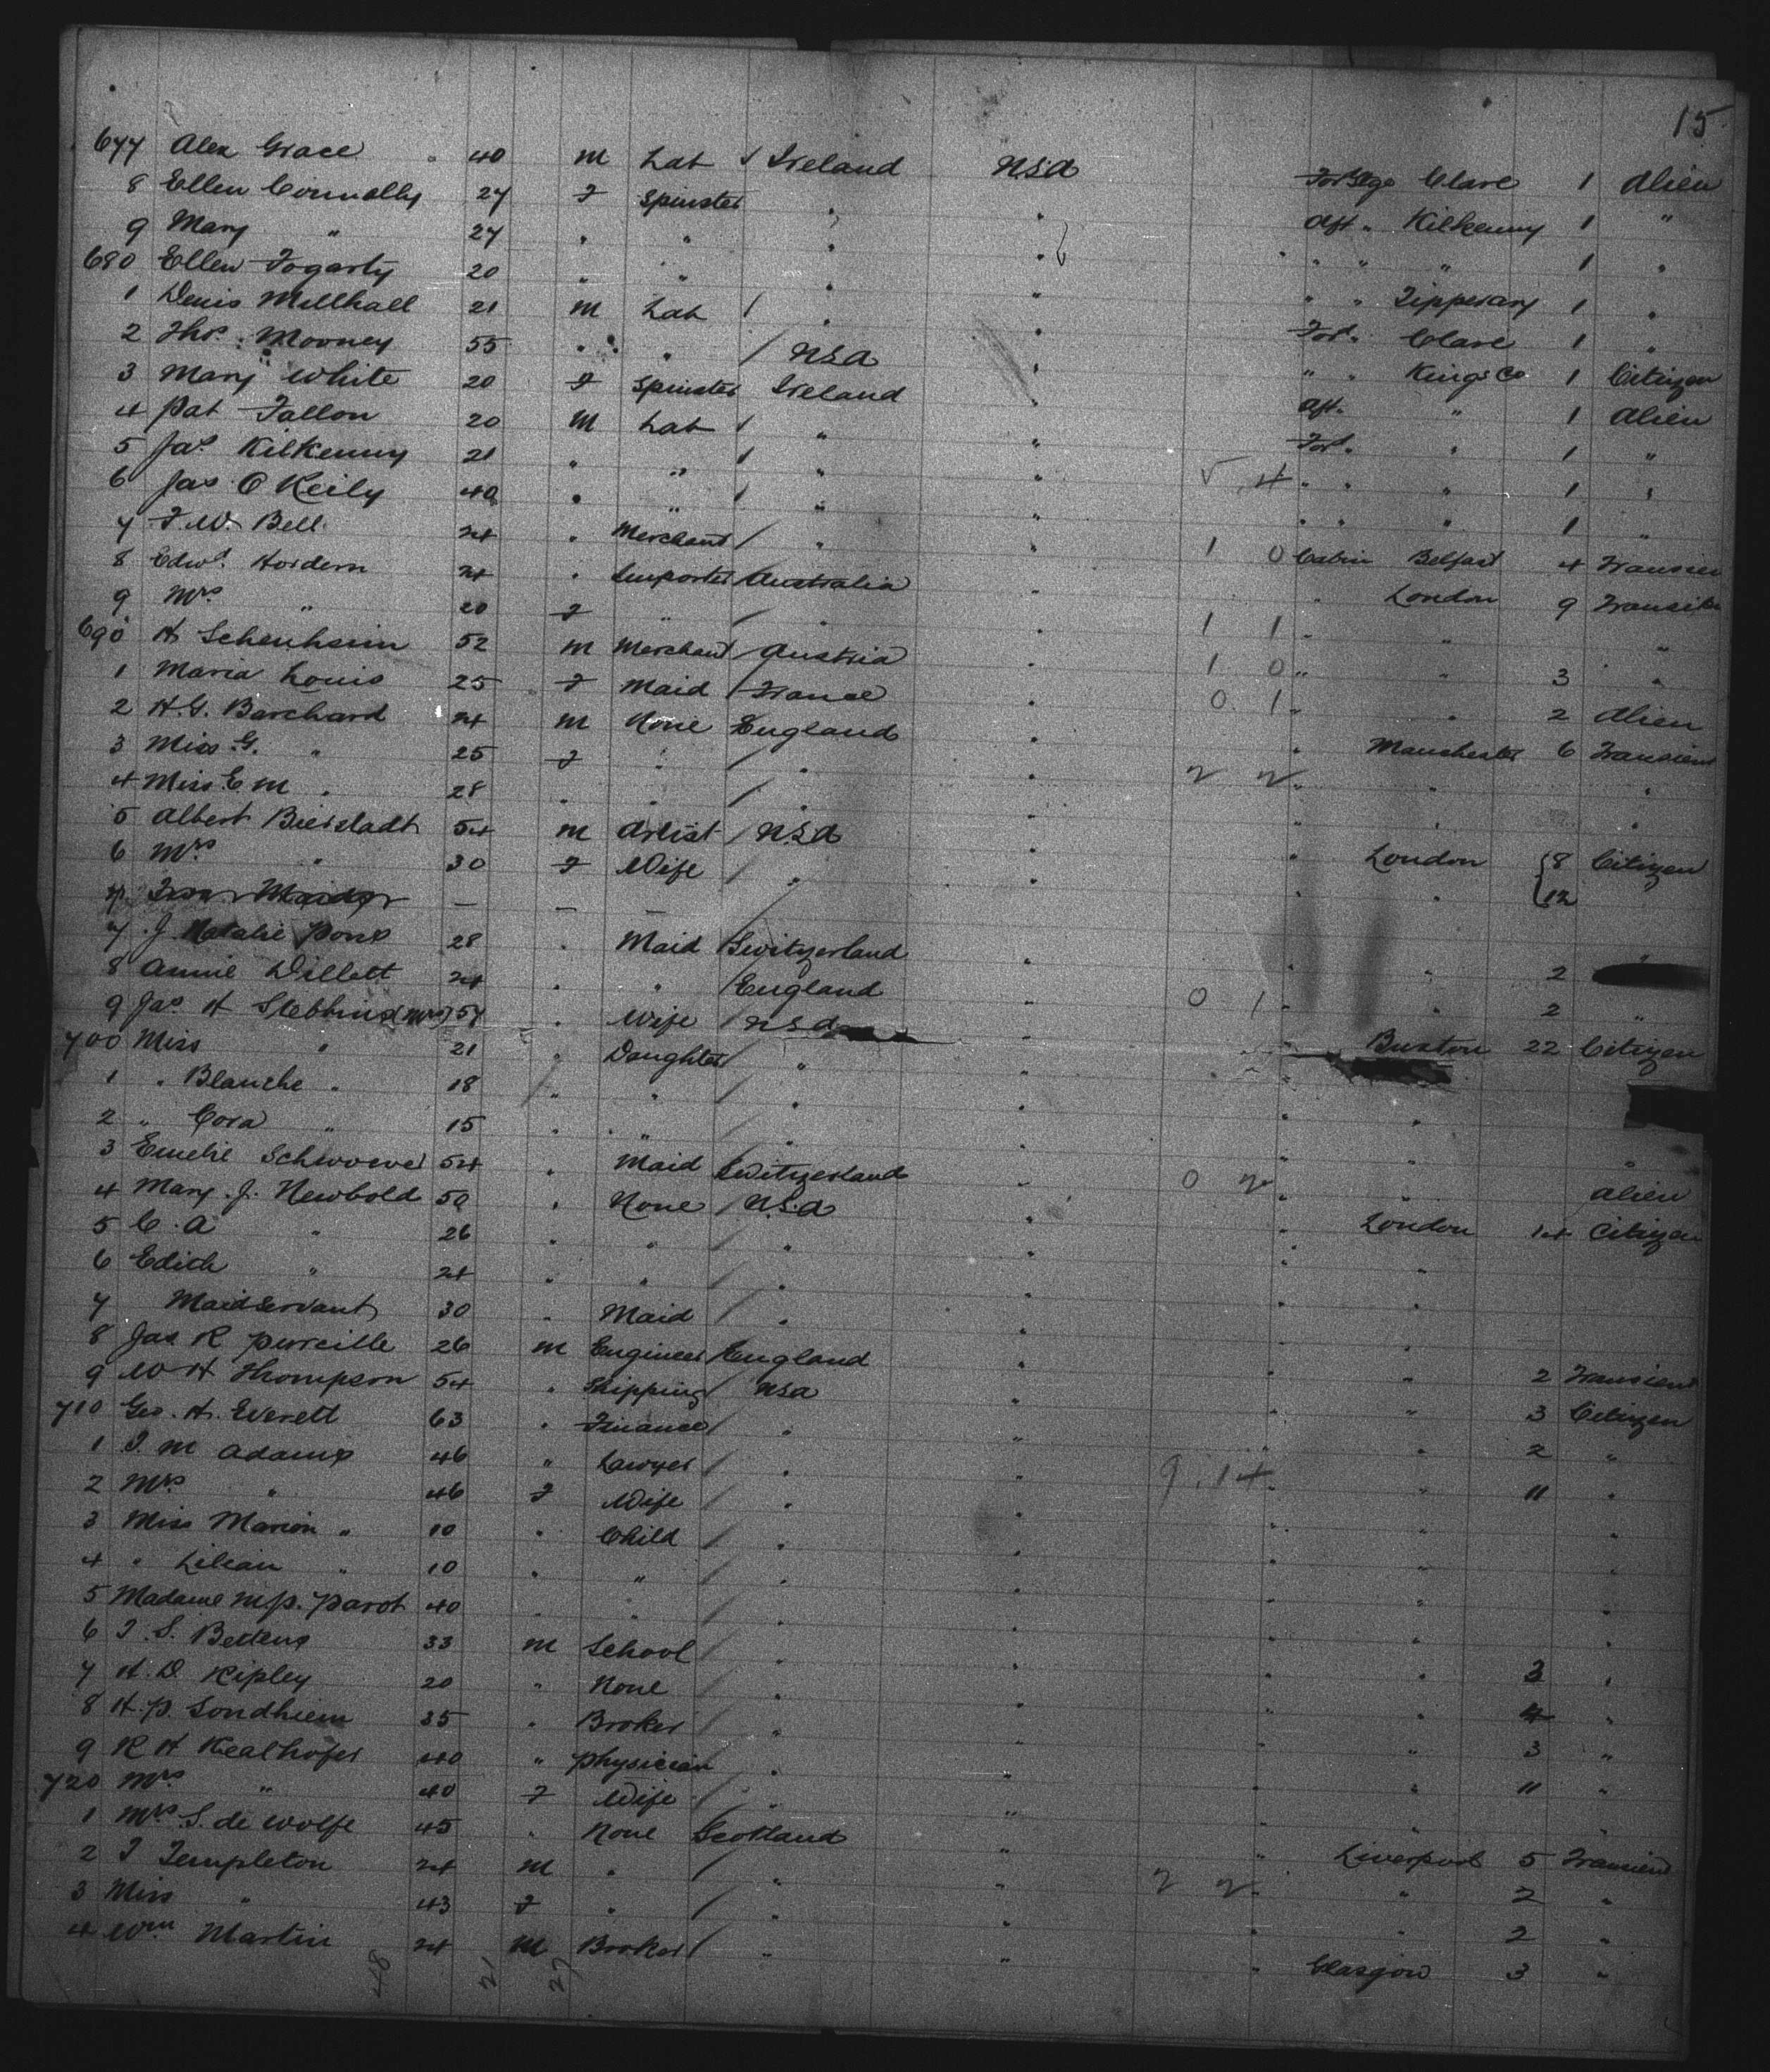 15
677 Alex Grace 40 M Lab Ireland USA For Stge Clare 1 Alien
8 Ellen Connolly 27 F Spinster " " Aft " Kilkenny 1 "
9 Mary " 27 " " " " " " " 1 "
680 Ellen Fogarty 20 " " " " " " Tipperary 1 "
1 Denis Millhall 21 M Lab " " For. " Clare 1 "
2 Thos. Mooney 55 " " USA " " " Kings Co 1 Citizen
3 Mary White 20 F Spinster Ireland " Aft. " 1 Alien
4 Pat Fallon 20 M Lab " " For. " 1 "
5 Jas. Kilkenny 21 " " " " 5 4 " " " 1 "
6 Jas O Keily 40 " " " " " " " 1 "
7 F. W. Bell 24 " Merchant " " 1 0 Cabin Belfast 4 Transien
8 Edwd. Hordern 24 " Importer Australia " " London 9 Transit
9 Mrs " 20 F " " " 1 1 " " "
690 H Schenheim 52 M Merchant Austria " 1 0 " " 3 "
1 Maria Louis 25 F Maid France " 0 1 " " 2 Alien
2 H. G. Barchard 24 M None England " " Manchester 6 Transient
3 Miss G. " 25 F " " " 2 2 " " "
4 Miss E M " 28 " " " " " " "
5 Albert Bierstadt 54 M Artist USA " " London 8 Citizen
6 Mrs " 30 F Wife " " " " 12
7 J. Natalie Pons 28 " Maid Switzerland " " " 2 "
8 Annie Willett 24 " " England " 0 1 " " 2 "
9 Jas H Stebbins (Mrs) 57 " Wife USA " Buxton 22 Citizen
700 Miss " 21 " Daughter " "
1 " Blanche " 18 " " " " " "
2 " Cora " 15 " " " " " " "
3 Emelie 54 " Maid Switzerland " 0 2 " " Alien
4 Mary J. Newbold 50 " None USA " " London 14 Citizen
5 C. A " 26 " " " " " "
6 Edith " 24 " " " " " "
7 Maidservant 30 " Maid " " " "
8 Jas R 26 M Engineer England " " " 2 Transient
9 W H Thompson 54 " Shipping USA " " " 3 Citizen
710 Geo. H. Everett 63 " Finance " " " " 2 "
1 I M Adams 46 " Lawyer " " 9 . 14 " " 11 "
2 Mrs " 46 F Wife " " " " "
3 Miss Marion " 10 " Child " " " " "
4 " Lilian " 10 " " " " " " "
5 Madame M. P. Parot 40 " " " " " " "
6 I. S. Bettens 33 M School " " " " 3 "
7 H. D. Ripley 20 " None " " " " 4 "
8 H. P. Sondhiem 35 " Broker " " " " 3 "
9 R H Kealhofer 40 " Physician " " " " 11 "
720 Mrs " 40 F Wife " " " " "
1 Mrs S. de Wolfe 45 " None Scotland " " Liverpool 5 Transient
2 I Templeton 24 M " " " 2 2 " " 2 "
3 Miss " 43 F " " " " " 2 "
4 Wm Martin 24 M Broker " " " Glasgow 3 "
48 21 27